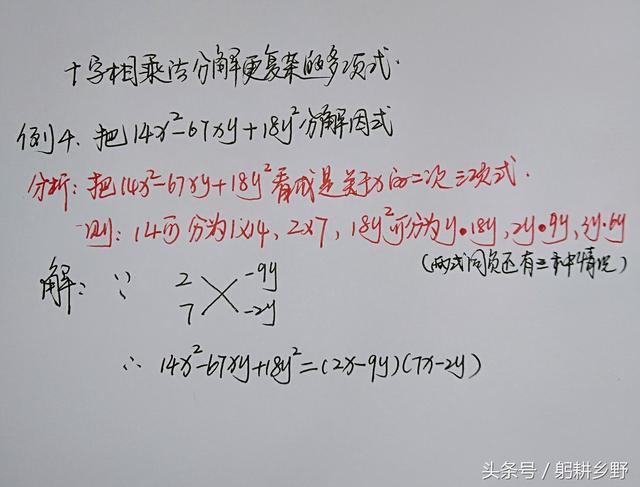 十字相乘法分解更复杂的多项式.
例4. 把14x²-67xy+18y²分解因式
分析: 把14x²-67xy+18y²看成是关于x的二次三项式.
则: 14可分为1x14, 2x7, 18y²可分为y•18y, 2y•9y, 3y•6y
(两式同负还有三种情况)
解: ∵ 2 -9y
7 -2y
∴ 14x²-67xy+18y²=(2x-9y)(7x-2y)
头条号 / 躬耕乡野